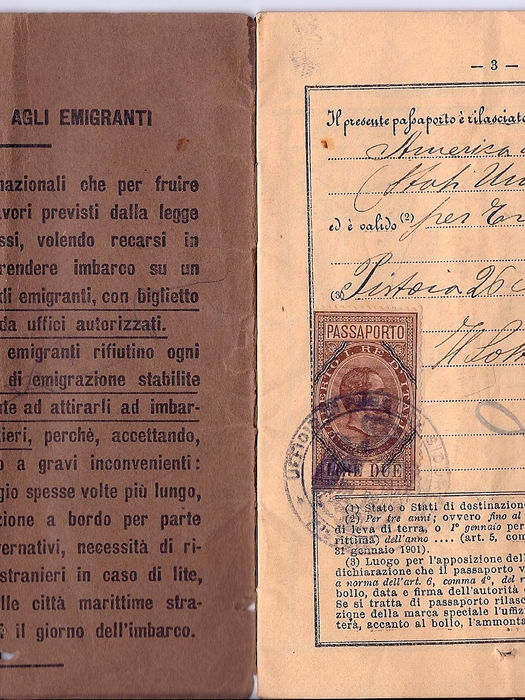 AGLI EMIGRANTI
nazionali che per fruire
avori previsti dalla legge
ssi, volendo recarsi in
rendere imbarco su un
di emigranti, con biglietto
da uffici autorizzati.
emigranti rifiutino ogni
di emigrazione stabilite
te ad attirarli ad imbar-
ieri, perchè, accettando,
o a gravi inconvenienti:
gio spesse volte più lungo,
zione a bordo per parte
vernativi, necessità di ri-
stranieri in caso di lite,
lle città marittime stra-
il giorno dell'imbarco.
— 3 —
Il presente passaporto è rilasciato
America
(Stati Un
ed è valido (2) per
(3) Pistoia 26
PASSAPORTO
LIRE DUE
UFFICIO
(1) Stato o Stati di destinazione
(2) Per tre anni; ovvero fino al
di leva di terra, o 1º gennaio per
rittima) dell'anno .... (art. 5, com
31 gennaio 1901).
(3) Luogo per l'apposizione dell'
dichiarazione che il passaporto v
a norma dell'art. 6, comma 4º, del r
bollo, data e firma dell'autorità
Se si tratta di passaporto rilasc
zione della marca speciale l'uffiz
terà, accanto al bollo, l'ammonta